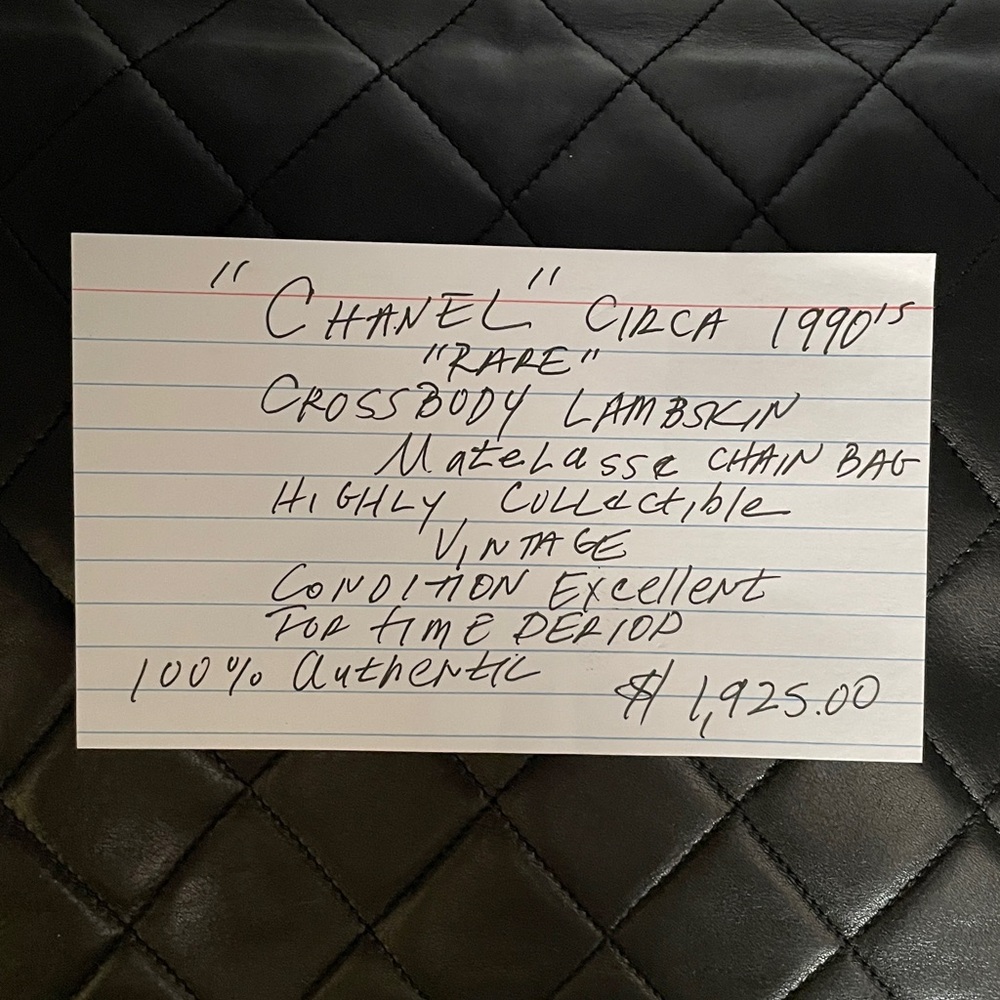 "CHANEL" CIRCA 1990's
"RARE"
CROSSBODY LAMBSKIN
Matelasse CHAIN BAG
HIGHLY Collectible
VINTAGE
CONDITION Excellent
FOR TIME PERIOD
100% Authentic $1,925.00